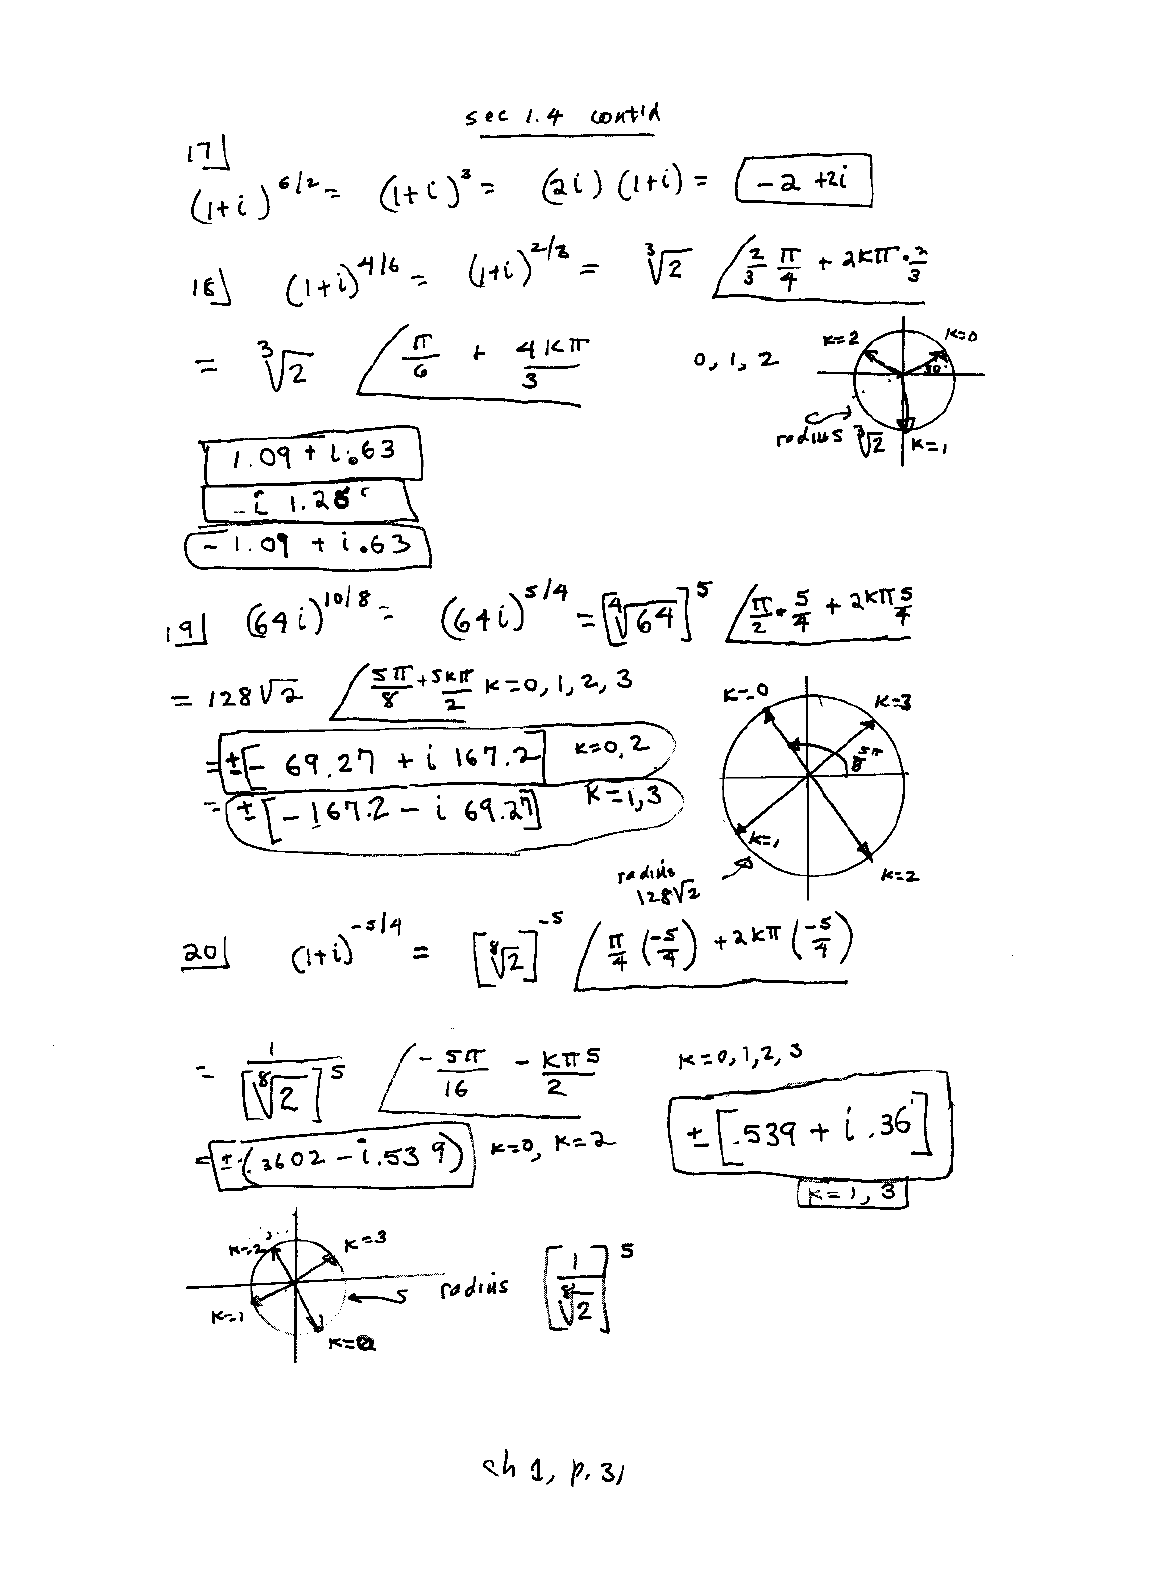 sec 1.4 cont'd
17]
(1+i)^6/2 = (1+i)^3 = (2i)(1+i) = -2 +2i
18] (1+i)^4/6 = (1+i)^2/3 = ∛2 ∠ 2/3 π/4 + 2kπ·2/3
= ∛2 ∠ π/6 + 4kπ/3 0, 1, 2
k=2 k=0
30°
radius ∛2 k=1
1.09 + i.63
-i 1.26
-1.09 + i.63
19] (64i)^10/8 = (64i)^5/4 = [∜64]^5 ∠ π/2 · 5/4 + 2kπ 5/4
= 128√2 ∠ 5π/8 + 5kπ/2 k=0, 1, 2, 3
k=0 k=3
5π/8
= ±[- 69.27 + i 167.2] k=0, 2
= ±[-167.2 - i 69.27] k=1,3
k=1
k=2
radius
128√2
20] (1+i)^-5/4 = [⁸√2]^-5 ∠ π/4 (-5/4) + 2kπ (-5/4)
= 1/[⁸√2]^5 ∠ -5π/16 - kπ5/2 k=0,1,2,3
= ±(.3602 - i.539) k=0, k=2
±[.539 + i .36]
k=1, 3
k=2 k=3
k=1
k=0
radius [1/⁸√2]^5
ch 1, p. 31